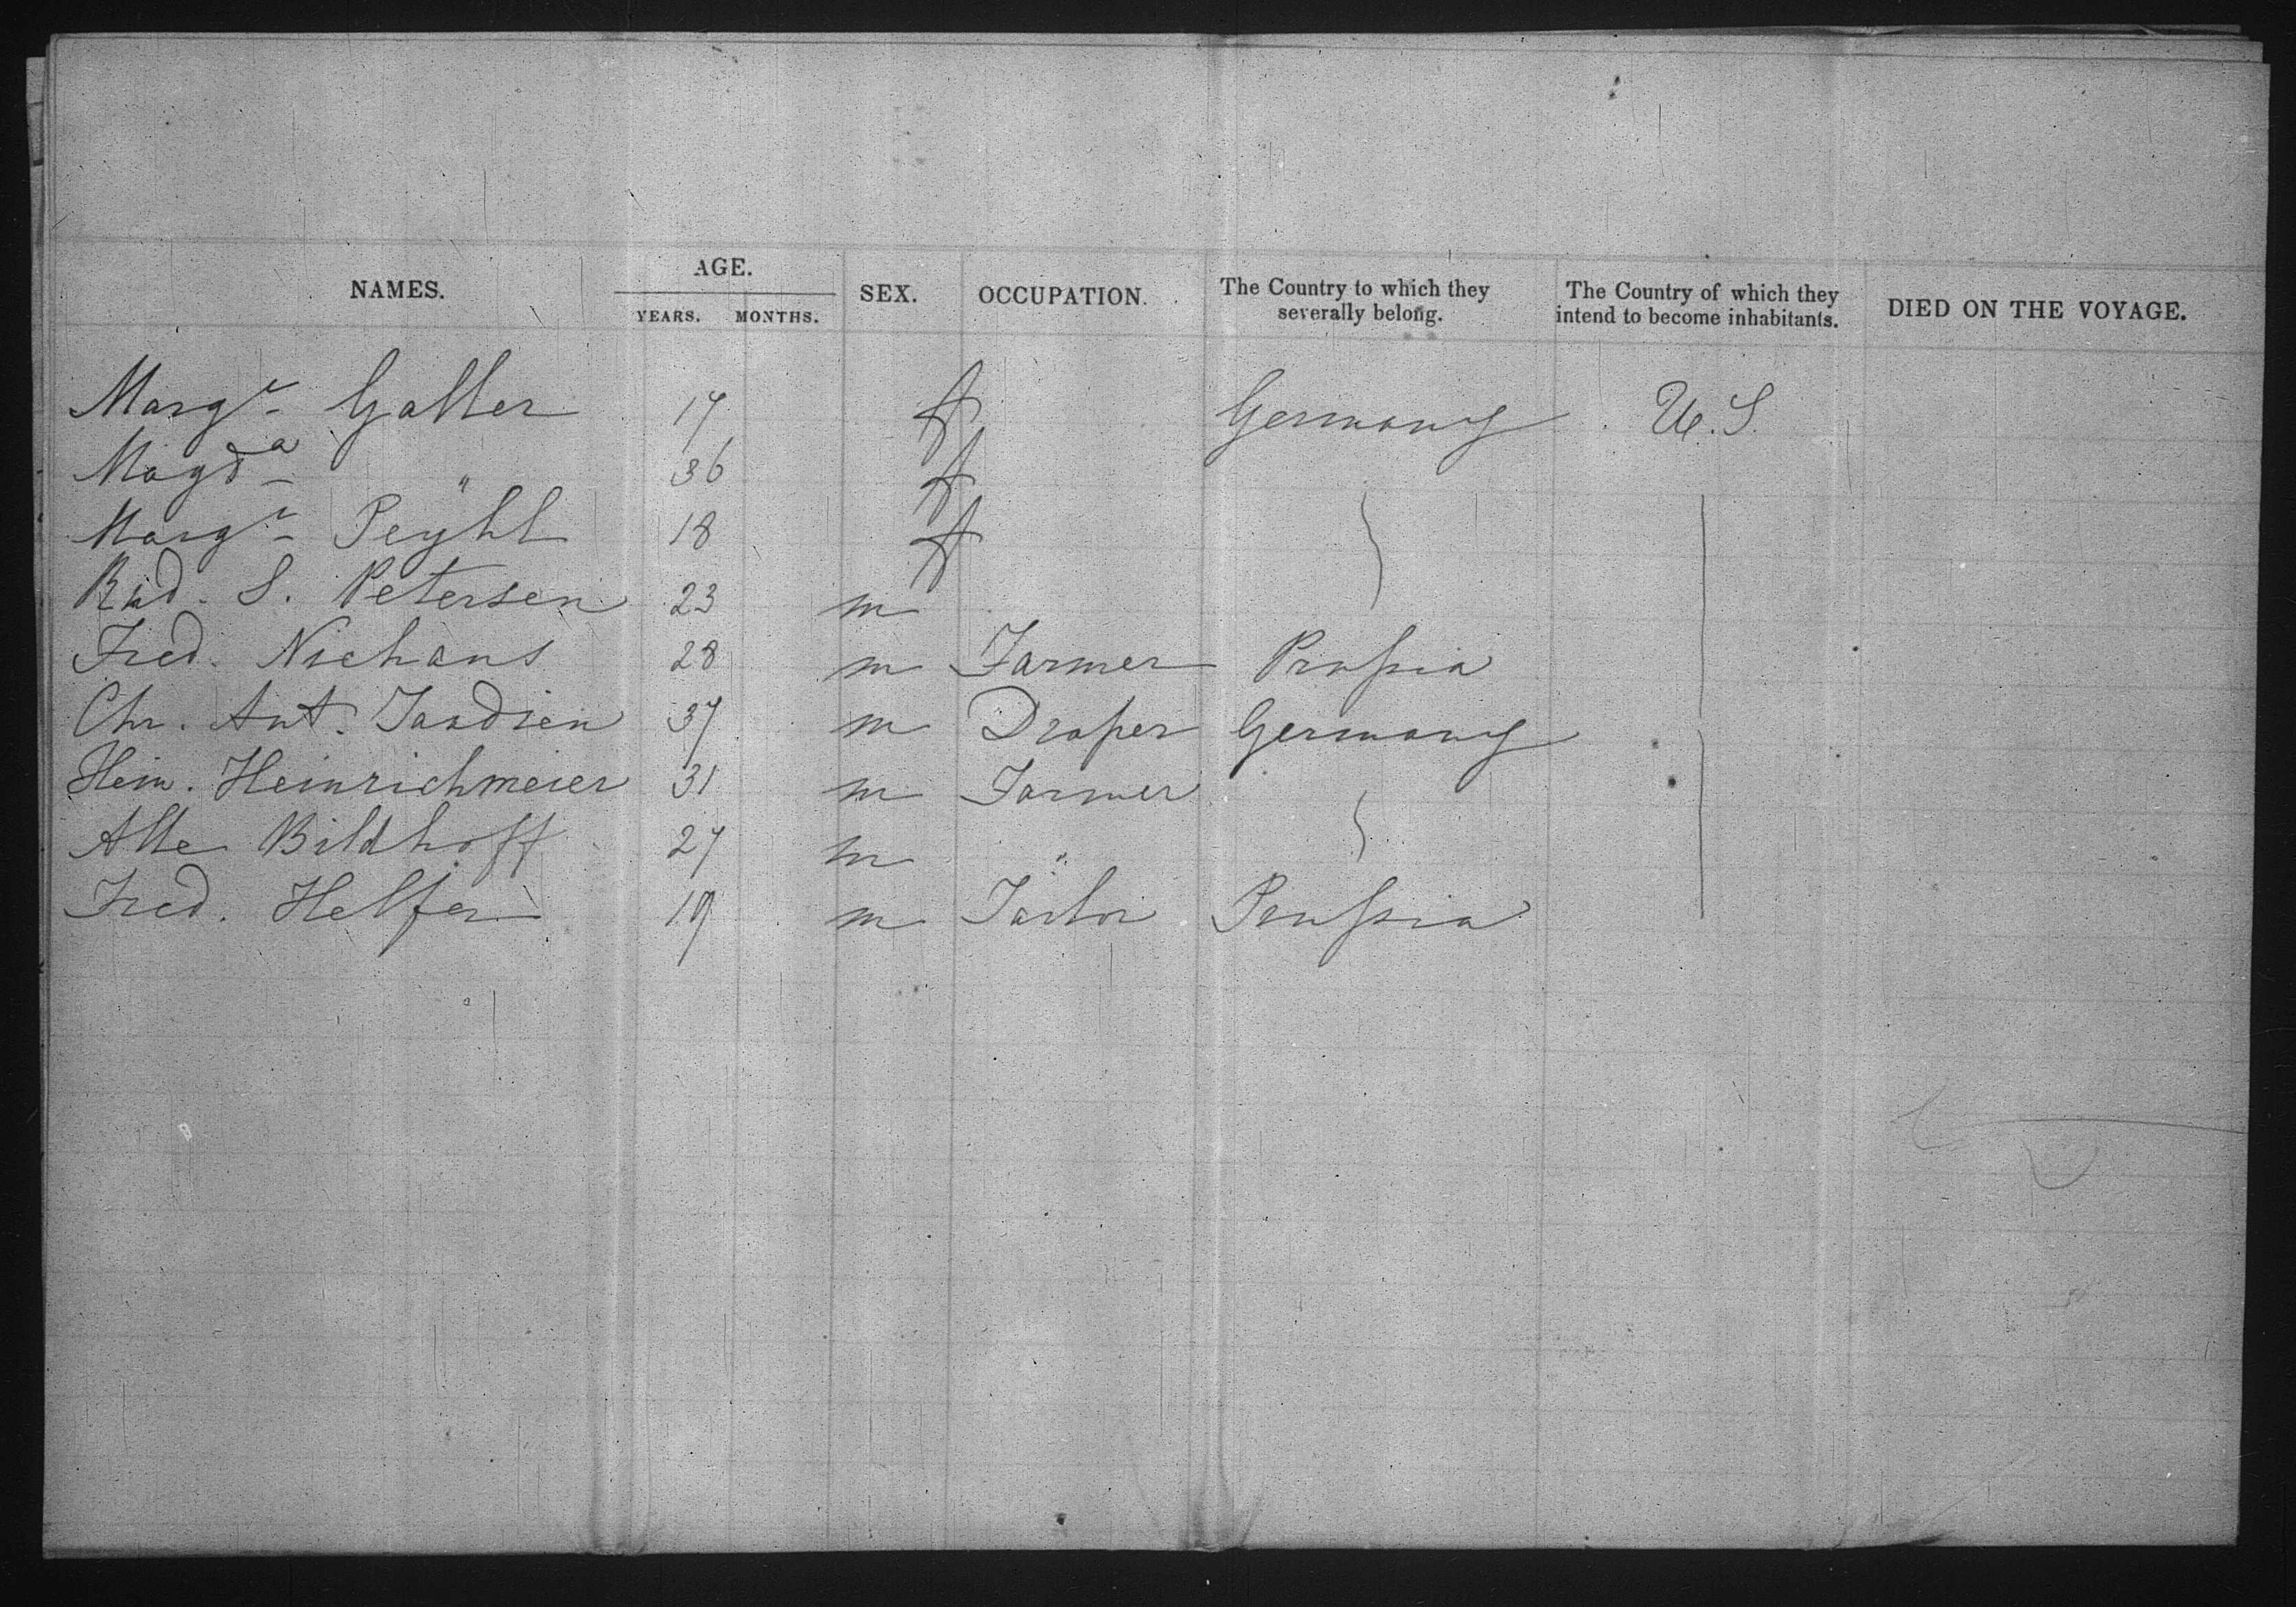 NAMES. AGE. SEX. OCCUPATION. The Country to which they severally belong. The Country of which they intend to become inhabitants. DIED ON THE VOYAGE.
YEARS. MONTHS.
Marg^r Galler 17 f Germany U.S.
Magd^a " 36 f
Marg^r Peyhl 18 f
Rud. S. Petersen 23 m
Fred. Niehans 28 m Farmer Prussia
Chr. Ant. Jandien 37 m Draper Germany
Hein. Heinrichmeier 31 m Farmer
Alle Bildhoff 27 m "
Fred. Helfer 19 m Tailor Prussia